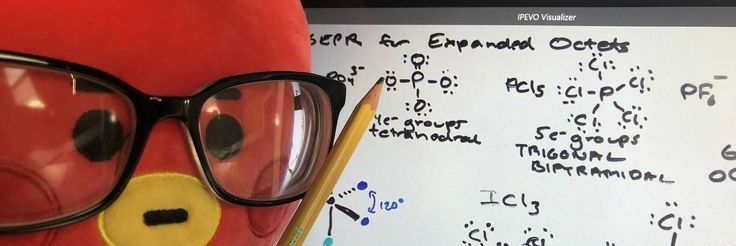 IPEVO Visualizer
SEPR for Expanded Octets
PO₄³⁻
:O–P–O:
O
O
4e- groups
tetrahedral
PCl5
:Cl–P
Cl:
Cl:
Cl:
Cl:
5e- groups
TRIGONAL
BIPYRAMIDAL
PF₆⁻
120°
ICl3
:Cl:
:Cl: